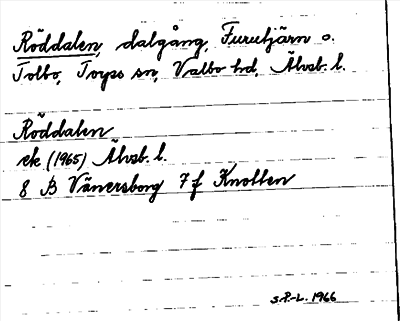 Röddalen, dalgång, Furutjärn o.
Tolbo, Torps sn, Valbo hd, Älvsb. l.
Röddalen
ek (1965) Älvsb. l.
8 B Vänersborg 7 f Knotten
S.P-L. 1966